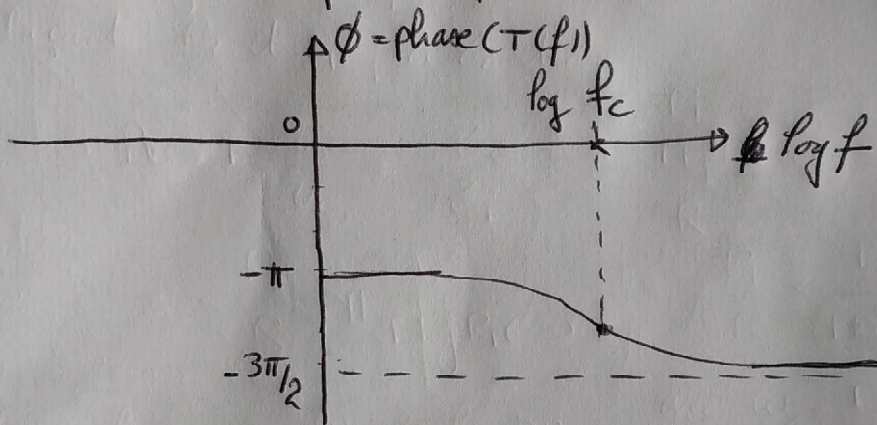 ϕ = phase(T(f))
log fc
0
log f
-π
-3π/2